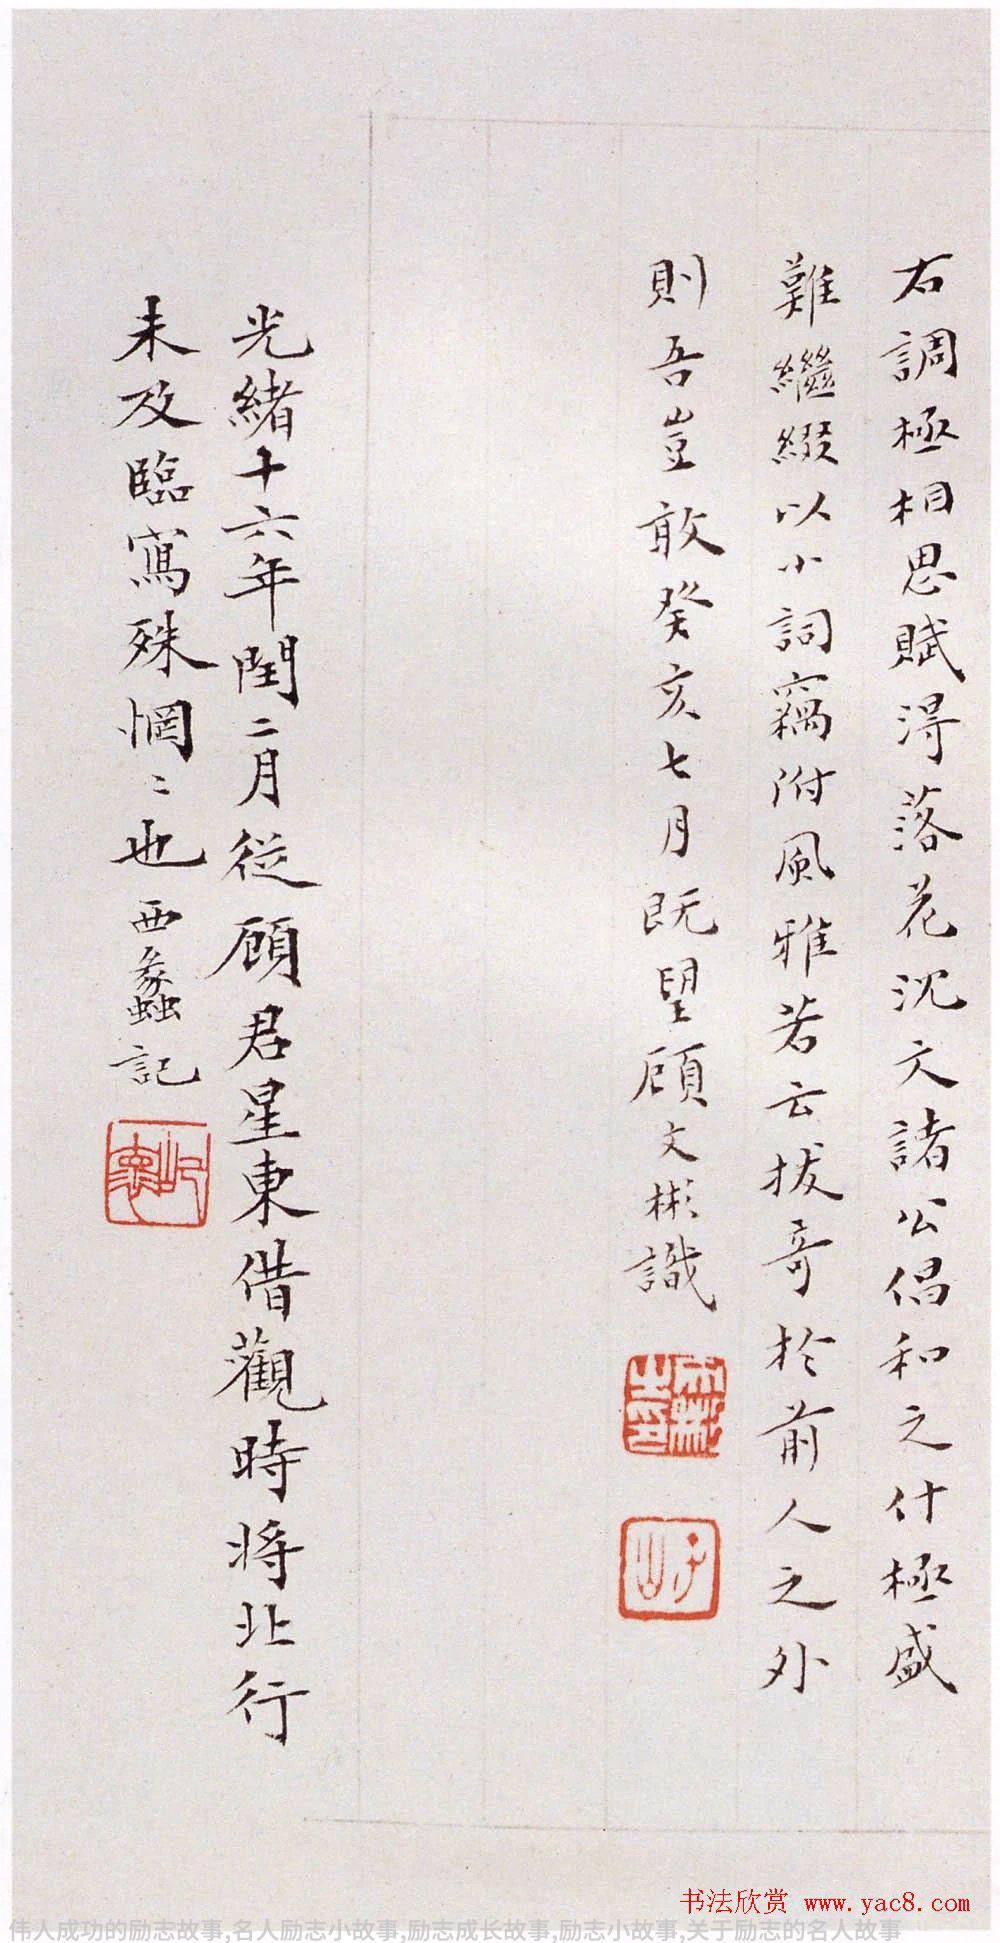 右調極相思賦得落花沈文諸公倡和之什極盛
難繼綴以小詞竊附風雅若云拔奇於前人之外
則吾豈敢癸亥七月既望顧文彬識
文彬之印
子山
光緒十六年閏二月從顧君星東借觀時將北行
未及臨寫殊惘〻也西蠡記
屺懷
书法欣赏 www.yac8.com
伟人成功的励志故事,名人励志小故事,励志成长故事,励志小故事,关于励志的名人故事